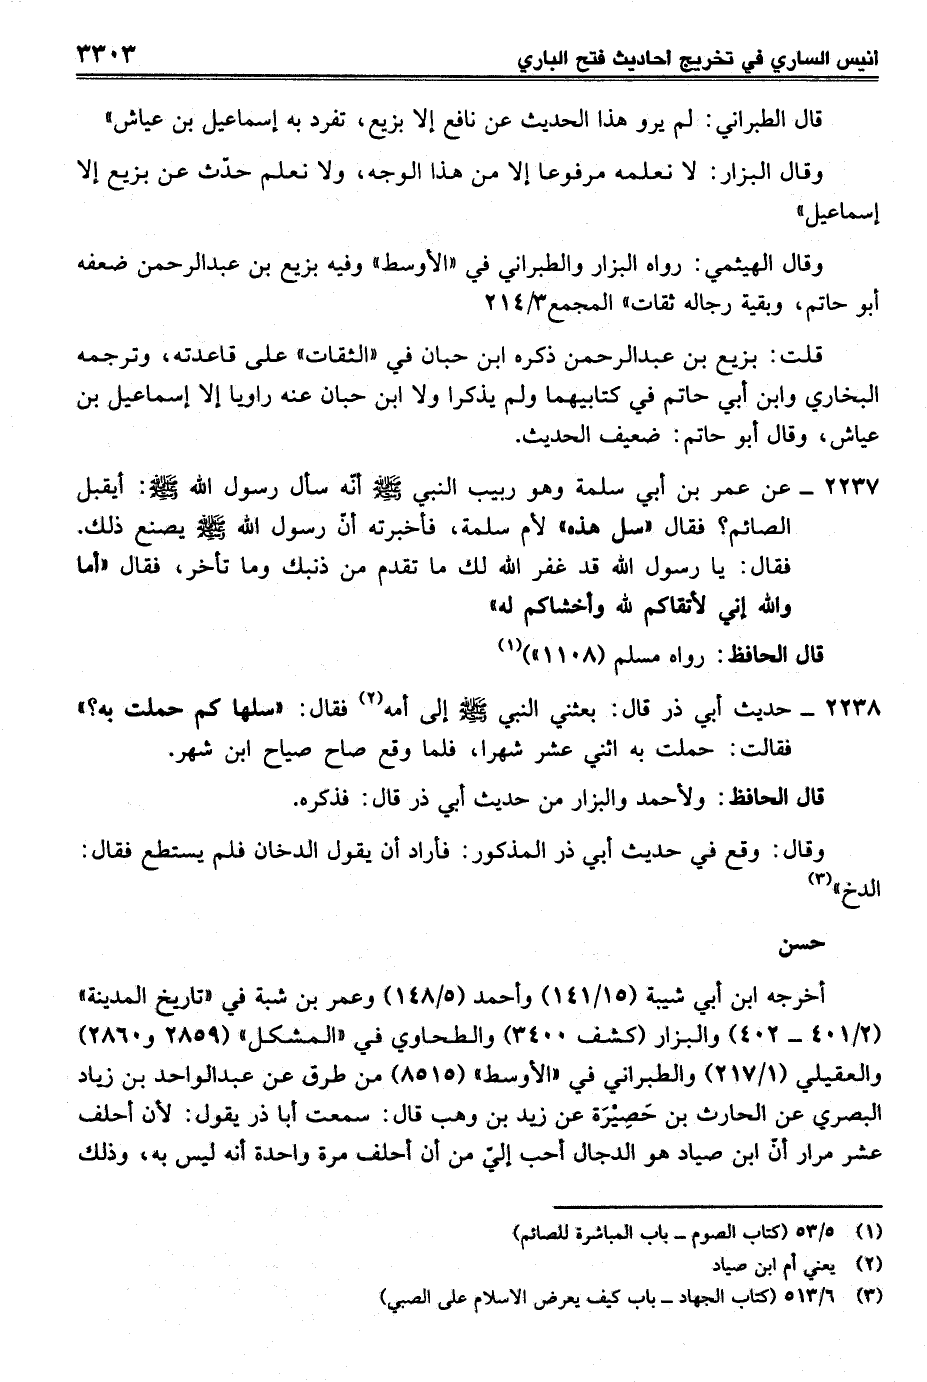 أنيس الساري في تخريج أحاديث فتح الباري ٣٣٠٣
قال الطبراني: لم يرو هذا الحديث عن نافع إلا بزيع، تفرد به إسماعيل بن عياش»
وقال البزار: لا نعلمه مرفوعا إلا من هذا الوجه، ولا نعلم حدّث عن بزيع إلا
إسماعيل»
وقال الهيثمي: رواه البزار والطبراني في «الأوسط» وفيه بزيع بن عبدالرحمن ضعفه
أبو حاتم، وبقية رجاله ثقات» المجمع ٢١٤/٣
قلت: بزيع بن عبدالرحمن ذكره ابن حبان في «الثقات» على قاعدته، وترجمه
البخاري وابن أبي حاتم في كتابيهما ولم يذكرا ولا ابن حبان عنه راويا إلا إسماعيل بن
عياش، وقال أبو حاتم: ضعيف الحديث.
٢٢٣٧ ـ عن عمر بن أبي سلمة وهو ربيب النبي ﷺ أنّه سأل رسول الله ﷺ: أيقبل
الصائم؟ فقال «سل هذه» لأم سلمة، فأخبرته أنّ رسول الله ﷺ يصنع ذلك.
فقال: يا رسول الله قد غفر الله لك ما تقدم من ذنبك وما تأخر، فقال «أما
والله إني لأتقاكم لله وأخشاكم له»
قال الحافظ: رواه مسلم (١١٠٨»)(١)
٢٢٣٨ ـ حديث أبي ذر قال: بعثني النبي ﷺ إلى أمه(٢) فقال: «سلها كم حملت به؟»
فقالت: حملت به اثني عشر شهرا، فلما وقع صاح صياح ابن شهر.
قال الحافظ: ولأحمد والبزار من حديث أبي ذر قال: فذكره.
وقال: وقع في حديث أبي ذر المذكور: فأراد أن يقول الدخان فلم يستطع فقال:
الدخ»(٣)
حسن
أخرجه ابن أبي شيبة (١٤١/١٥) وأحمد (١٤٨/٥) وعمر بن شبة في «تاريخ المدينة»
(٤٠١/٢ ـ ٤٠٢) والبزار (كشف ٣٤٠٠) والطحاوي في «المشكل» (٢٨٥٩ و٢٨٦٠)
والعقيلي (٢١٧/١) والطبراني في «الأوسط» (٨٥١٥) من طرق عن عبدالواحد بن زياد
البصري عن الحارث بن حَصِيْرَة عن زيد بن وهب قال: سمعت أبا ذر يقول: لأن أحلف
عشر مرار أنّ ابن صياد هو الدجال أحب إليّ من أن أحلف مرة واحدة أنه ليس به، وذلك
(١) ٥٣/٥ (كتاب الصوم ـ باب المباشرة للصائم)
(٢) يعني أم ابن صياد
(٣) ٥١٣/٦ (كتاب الجهاد ـ باب كيف يعرض الاسلام على الصبي)